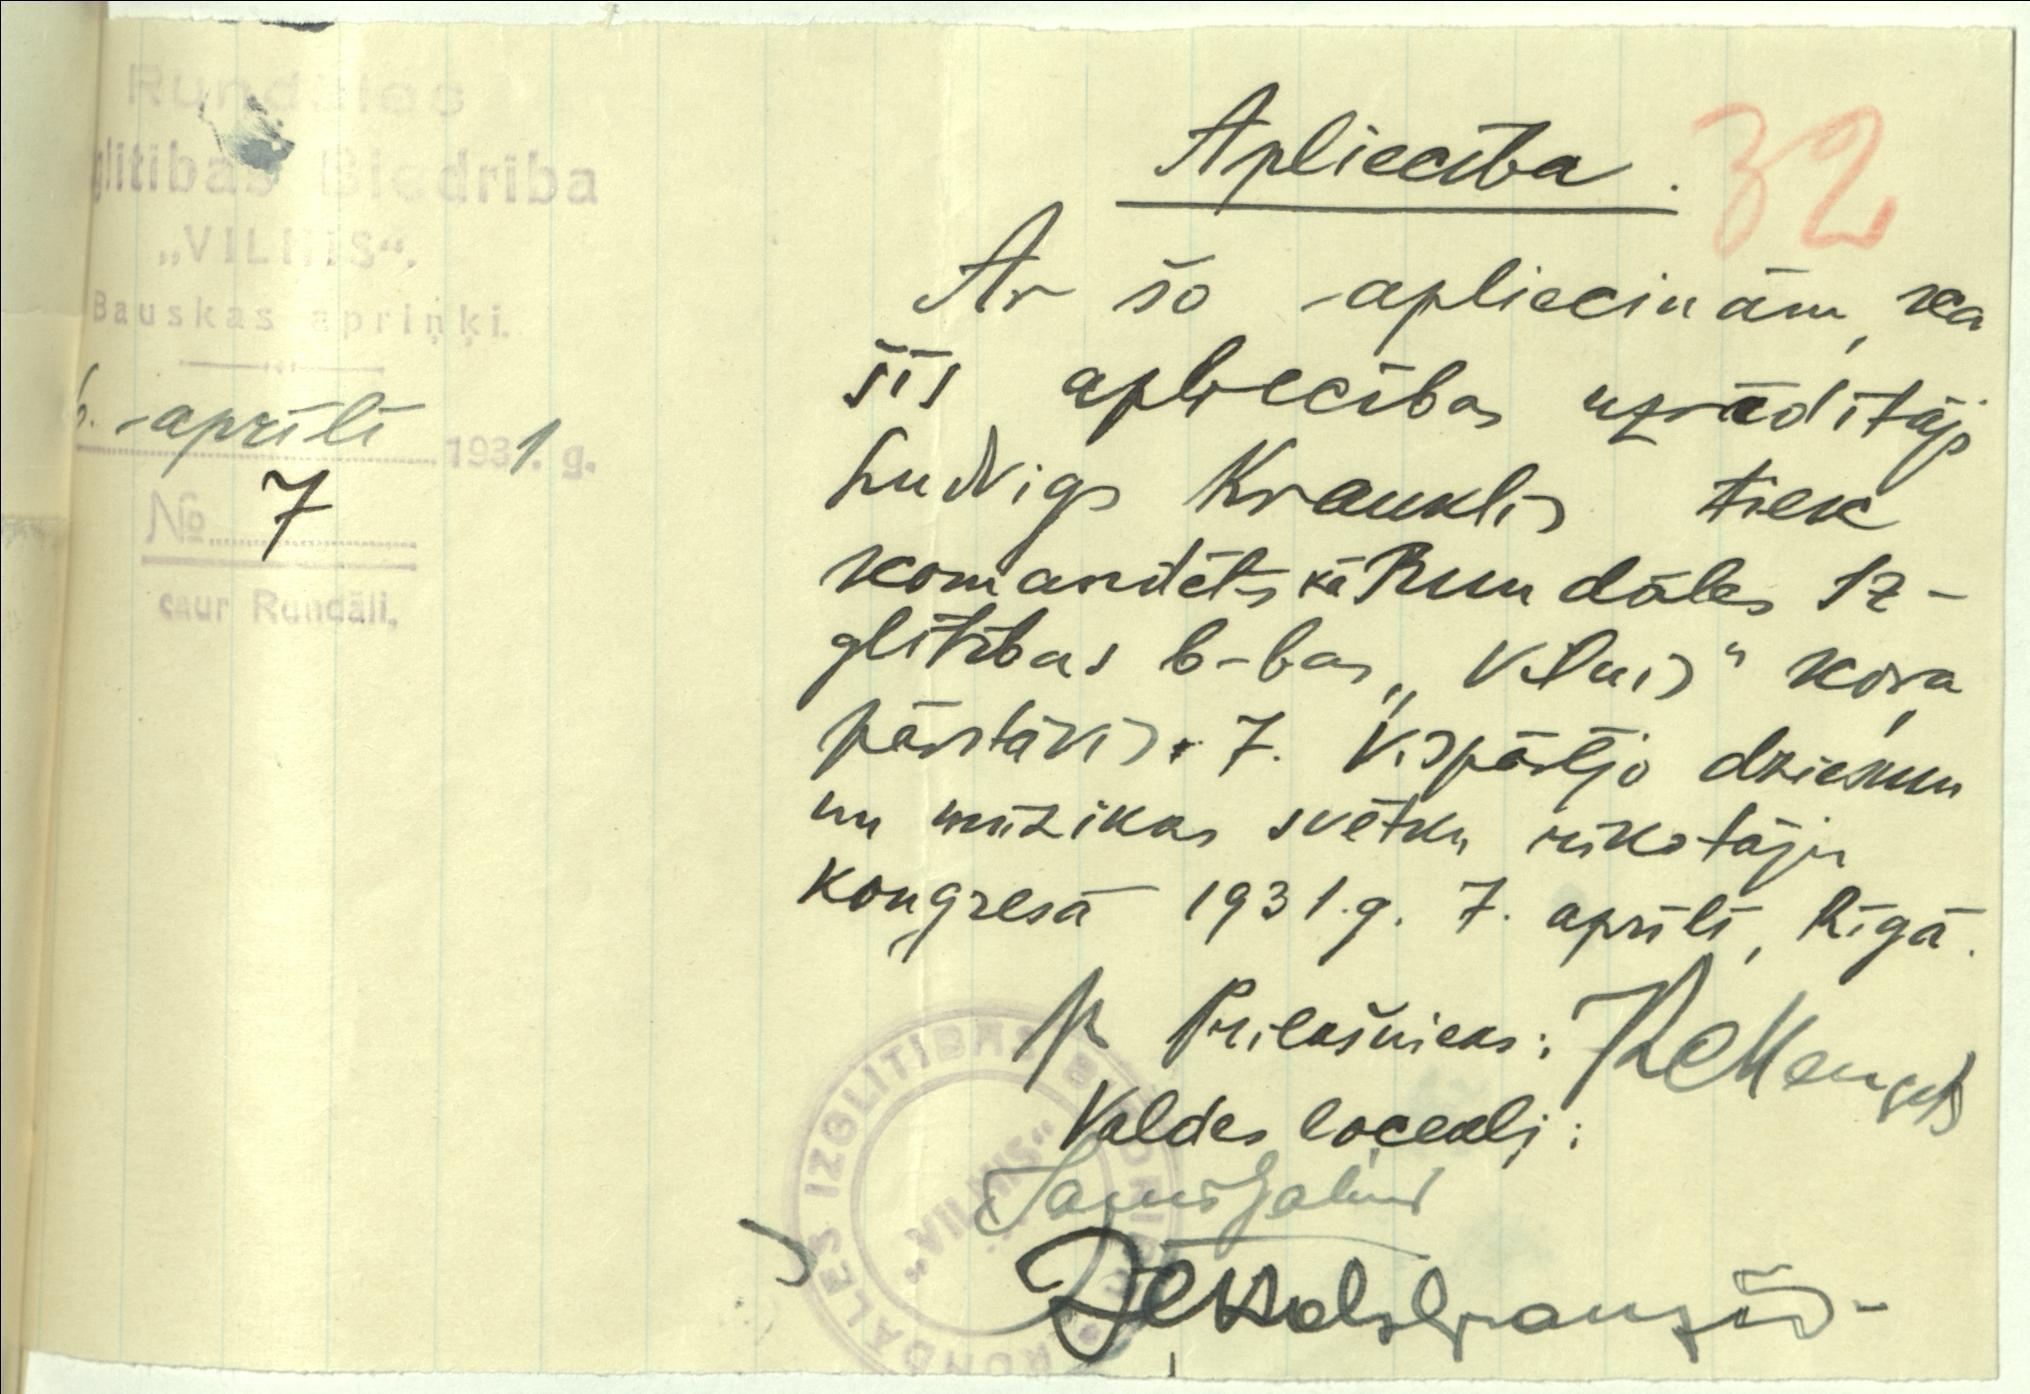 Rundāles
glītības Biedrība
„VILNIS“.
Bauskas apriņķi.
6. aprīlī 1931. g.
No 7
caur Rundāli,
32
Apliecība.
Ar šo apliecinām, ka
šīs apliecības uzrādītājs
Ludvigs Krauklis tiek
komandēts kā Rundāles Iz-
glītības b-bas „Vilnis" kora
pārstāvis 7. Vispārējo dziesmu
un mūzikas svētku rīkotāju
kongresā 1931.g. 7. aprīlī, Rīgā.
p. Priekšnieks:
Valdes locekļi:
RUNDĀLES IZGLĪTĪBAS BIEDRĪBA
„VILNIS“